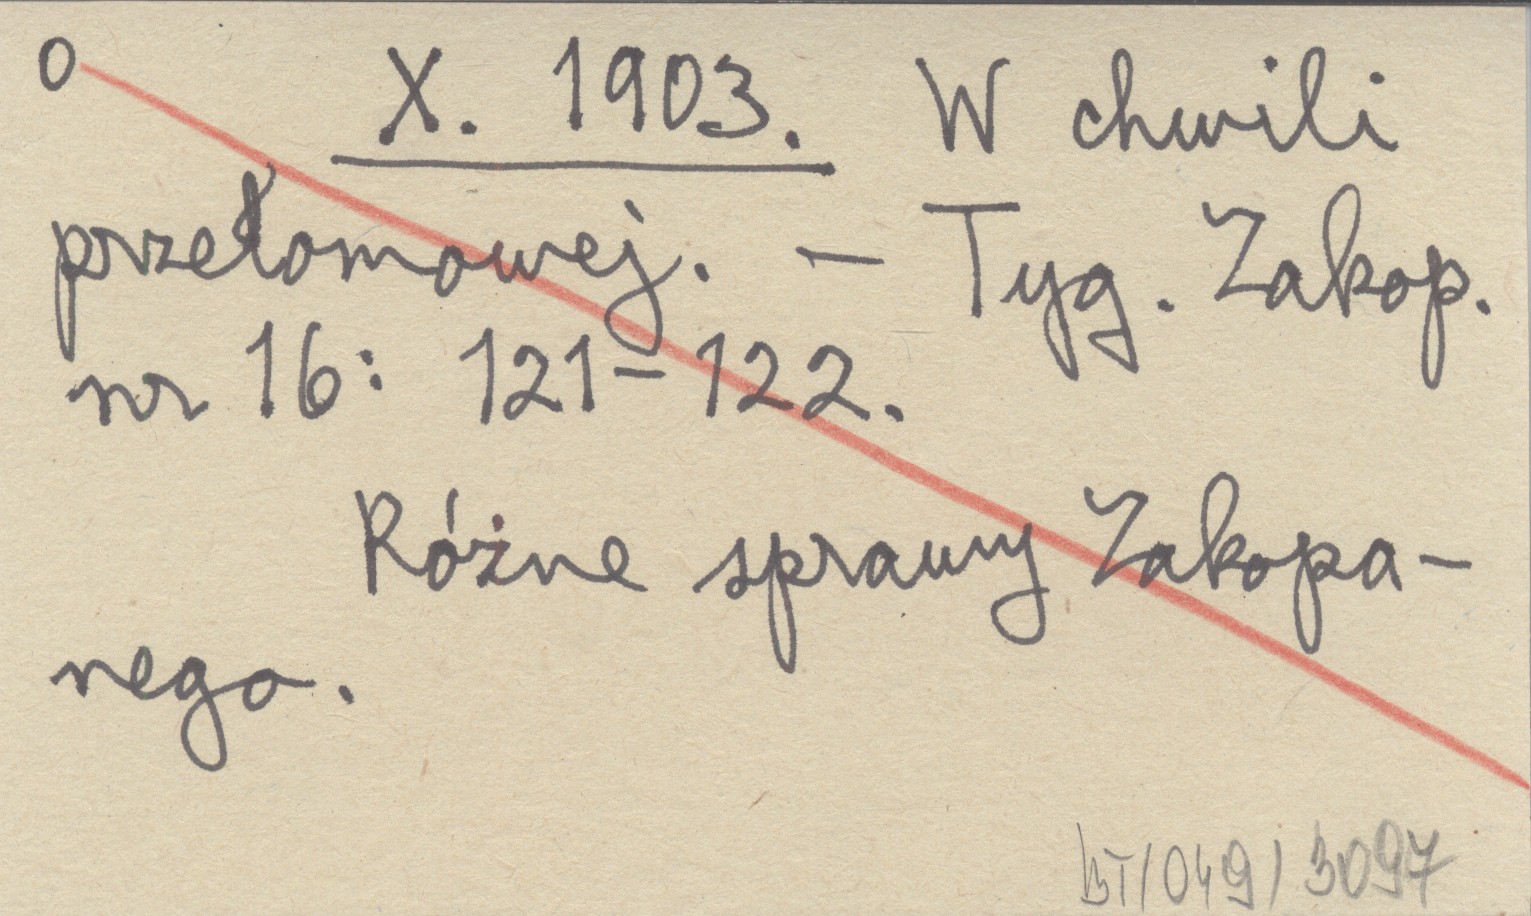 O X. 1903. W chwili
przełomowej. – Tyg. Zakop.
nr 16: 121–122.
Różne sprawy Zakopa-
nego.
BT/049/3097